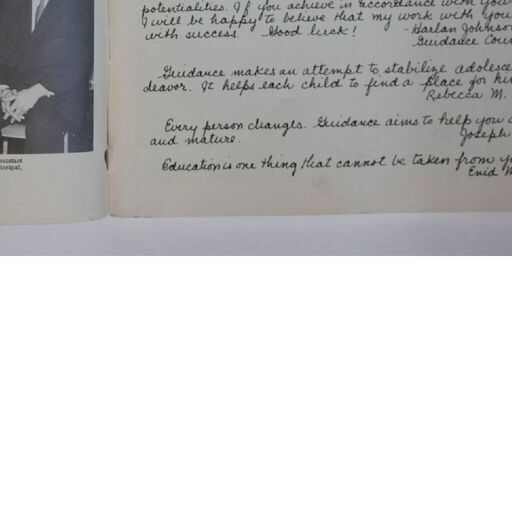 potentialities. If you achieve in accordance with your
I will be happy to believe that my work with you
with success. Good luck!
- Harlan Johnson
Guidance Coun
Guidance makes an attempt to stabilize adolesce
deavor. It helps each child to find a place for him
Rebecca M.
Every person changes. Guidance aims to help you
and mature.
Joseph
Education is one thing that cannot be taken from yo
Enid M
ssistant
ncipal,